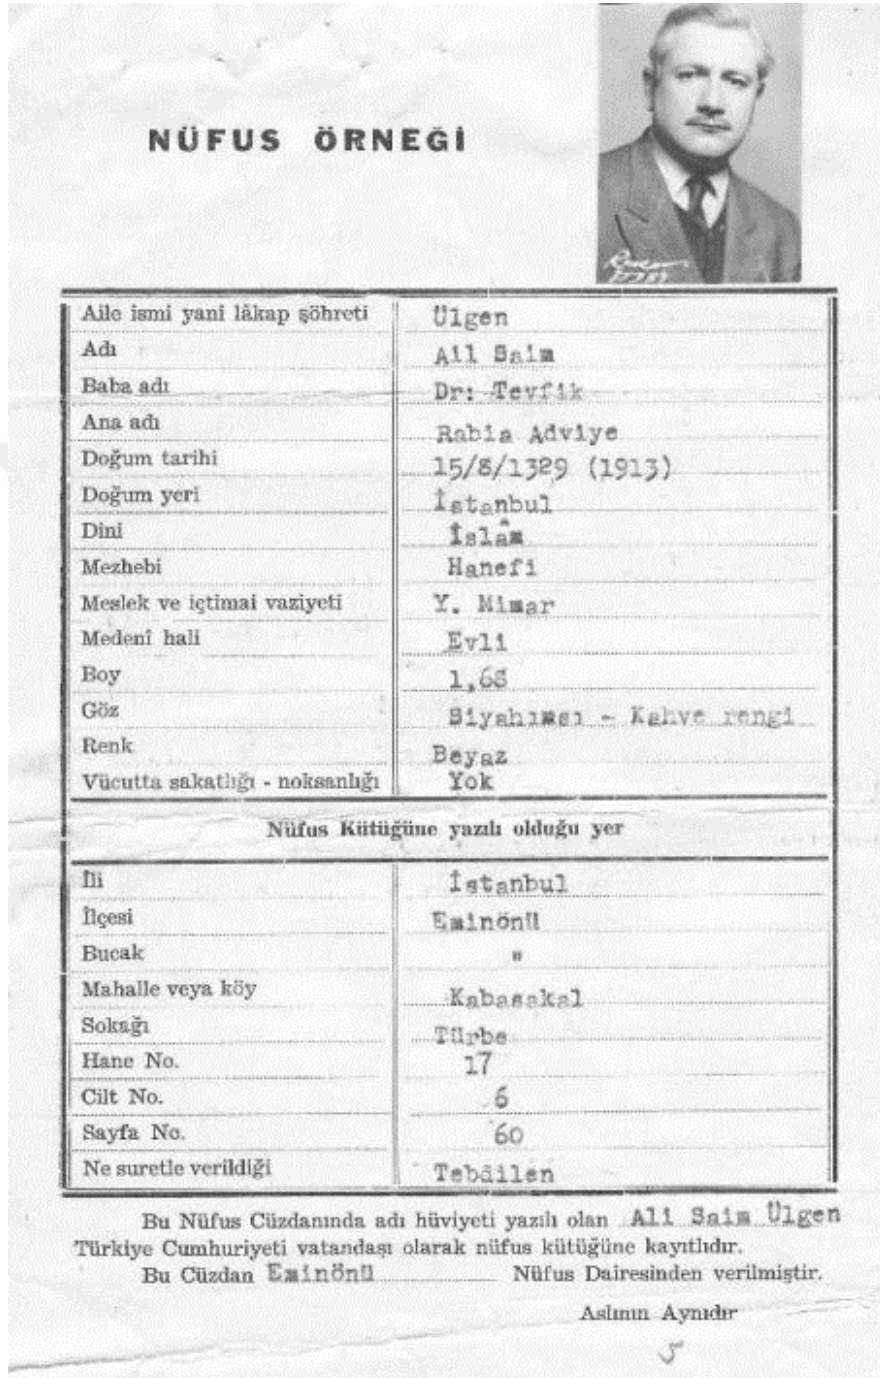 NÜFUS ÖRNEĞİ
Aile ismi yani lâkap şöhreti Ülgen
Adı Ali Saim
Baba adı Dr: Tevfik
Ana adı Rabia Adviye
Doğum tarihi 15/8/1329 (1913)
Doğum yeri İstanbul
Dini İslâm
Mezhebi Hanefi
Meslek ve içtimai vaziyeti Y. Mimar
Medenî hali Evli
Boy 1,68
Göz Siyahımsı - Kahve rengi
Renk Beyaz
Vücutta sakatlığı - noksanlığı Yok
Nüfus Kütüğüne yazılı olduğu yer
İli İstanbul
İlçesi Eminönü
Bucak "
Mahalle veya köy Kabasakal
Sokağı Türbe
Hane No. 17
Cilt No. 6
Sayfa No. 60
Ne suretle verildiği Tebdilen
Bu Nüfus Cüzdanında adı hüviyeti yazılı olan Ali Saim Ülgen
Türkiye Cumhuriyeti vatandaşı olarak nüfus kütüğüne kayıtlıdır.
Bu Cüzdan Eminönü Nüfus Dairesinden verilmiştir.
Aslının Aynıdır
5